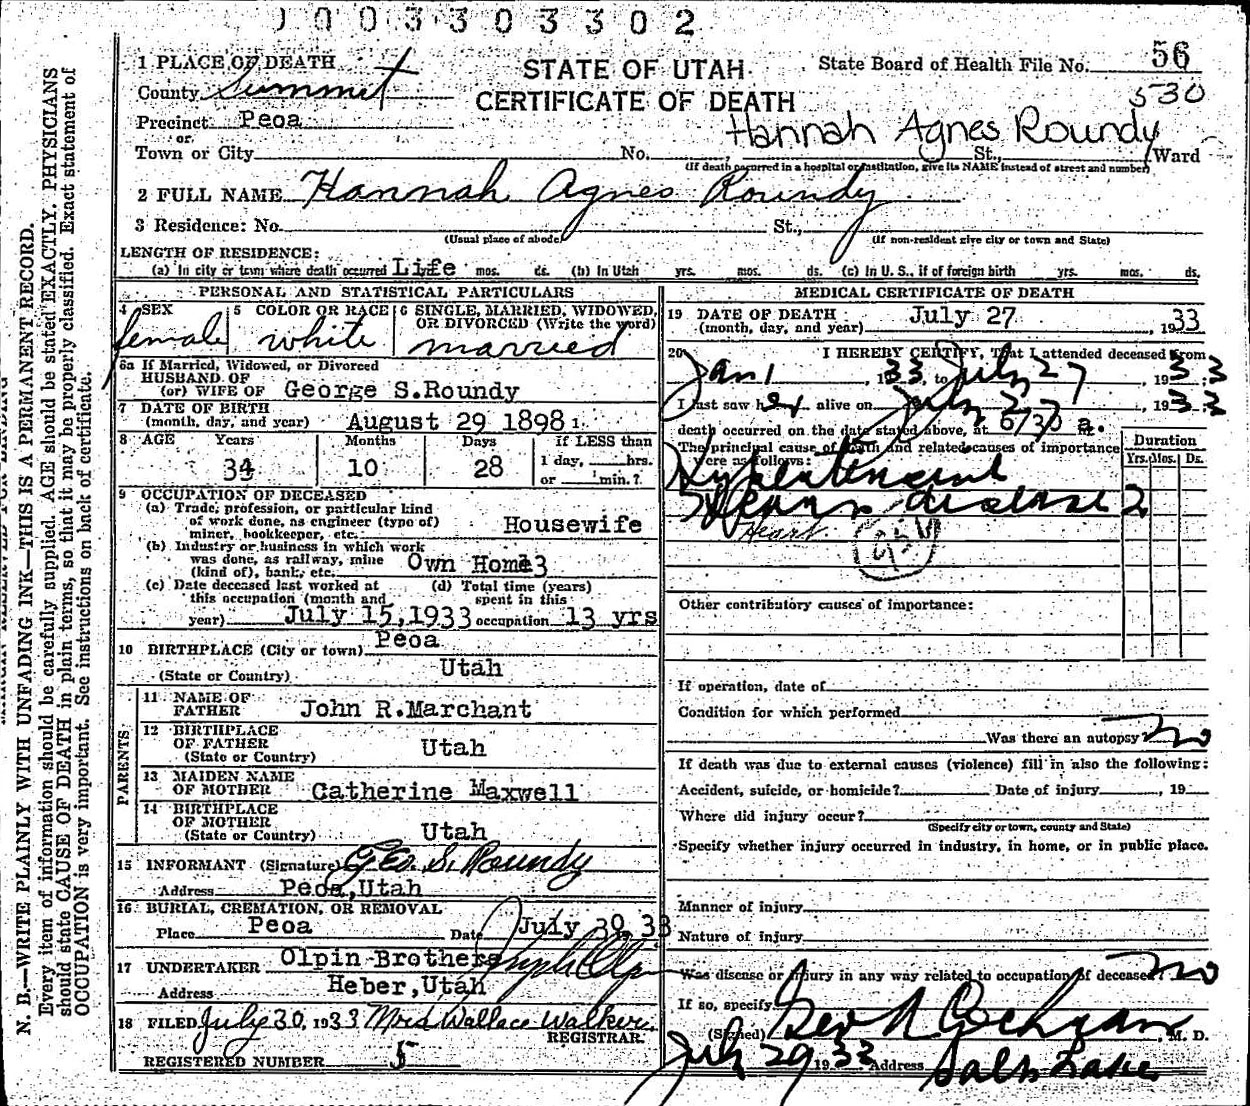 003303302
1 PLACE OF DEATH
STATE OF UTAH
State Board of Health File No. 56
County Summit
CERTIFICATE OF DEATH
530
Precinct Peoa
or
Hannah Agnes Roundy
Town or City No. St., Ward
(If death occurred in a hospital or institution, give its NAME instead of street and number)
2 FULL NAME Hannah Agnes Roundy
3 Residence: No. St.,
(Usual place of abode) (If non-resident give city or town and State)
LENGTH OF RESIDENCE:
(a) In city or town where death occurred Life mos. ds. (b) In Utah yrs. mos. ds. (c) In U. S., if of foreign birth yrs. mos. ds.
PERSONAL AND STATISTICAL PARTICULARS
4 SEX 5 COLOR OR RACE 6 SINGLE, MARRIED, WIDOWED,
OR DIVORCED (Write the word)
female white married
6a If Married, Widowed, or Divorced
HUSBAND OF
(or) WIFE OF George S.Roundy
7 DATE OF BIRTH
(month, day, and year) August 29 1898
8 AGE Years Months Days If LESS than
34 10 28 1 day, hrs.
or min.?
9 OCCUPATION OF DECEASED
(a) Trade, profession, or particular kind
of work done, as engineer (type of)
miner, bookkeeper, etc. Housewife
(b) Industry or business in which work
was done, as railway, mine
(kind of), bank, etc. Own Home
(c) Date deceased last worked at (d) Total time (years)
this occupation (month and spent in this
year) July 15,1933 occupation 13 yrs
10 BIRTHPLACE (City or town) Peoa
(State or Country) Utah
PARENTS
11 NAME OF
FATHER John R.Marchant
12 BIRTHPLACE
OF FATHER Utah
(State or Country)
13 MAIDEN NAME
OF MOTHER Catherine Maxwell
14 BIRTHPLACE
OF MOTHER
(State or Country) Utah
15 INFORMANT (Signature) Geo. S. Roundy
Address Peoa,Utah
16 BURIAL, CREMATION, OR REMOVAL
Place Peoa Date July 30, 33
17 UNDERTAKER Olpin Brothers
Address Heber,Utah
18 FILED July 30, 1933 Mrs Wallace Walker
REGISTRAR.
REGISTERED NUMBER 5
MEDICAL CERTIFICATE OF DEATH
19 DATE OF DEATH July 27
(month, day, and year) , 1933
20 I HEREBY CERTIFY, That I attended deceased from
Jan 1 , 1933, to July 27 , 1933;
I last saw her alive on July 27 , 1933
death occurred on the date stated above, at 6/30 a.
The principal cause of death and related causes of importance
were as follows:
Duration
Yrs. Mos. Ds.
disease 2
Heart
Other contributory causes of importance:
If operation, date of
Condition for which performed
Was there an autopsy? no
If death was due to external causes (violence) fill in also the following:
Accident, suicide, or homicide? Date of injury , 19
Where did injury occur?
(Specify city or town, county and State)
Specify whether injury occurred in industry, in home, or in public place.
Manner of injury
Nature of injury
Was disease or injury in any way related to occupation of deceased? no
If so, specify
(Signed) Geo N Cochran , M. D.
July 29 1933 Address Salt Lake
N. B.—WRITE PLAINLY WITH UNFADING INK—THIS IS A PERMANENT RECORD.
Every item of information should be carefully supplied. AGE should be stated EXACTLY. PHYSICIANS
should state CAUSE OF DEATH in plain terms, so that it may be properly classified. Exact statement of
OCCUPATION is very important. See instructions on back of certificate.